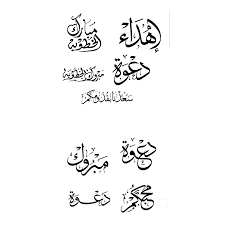 إهداء مبارك الخطوبة
دعوة مبروك الخطوبة
سعدنا بقدومكم
دعوة مبروك
دعوة